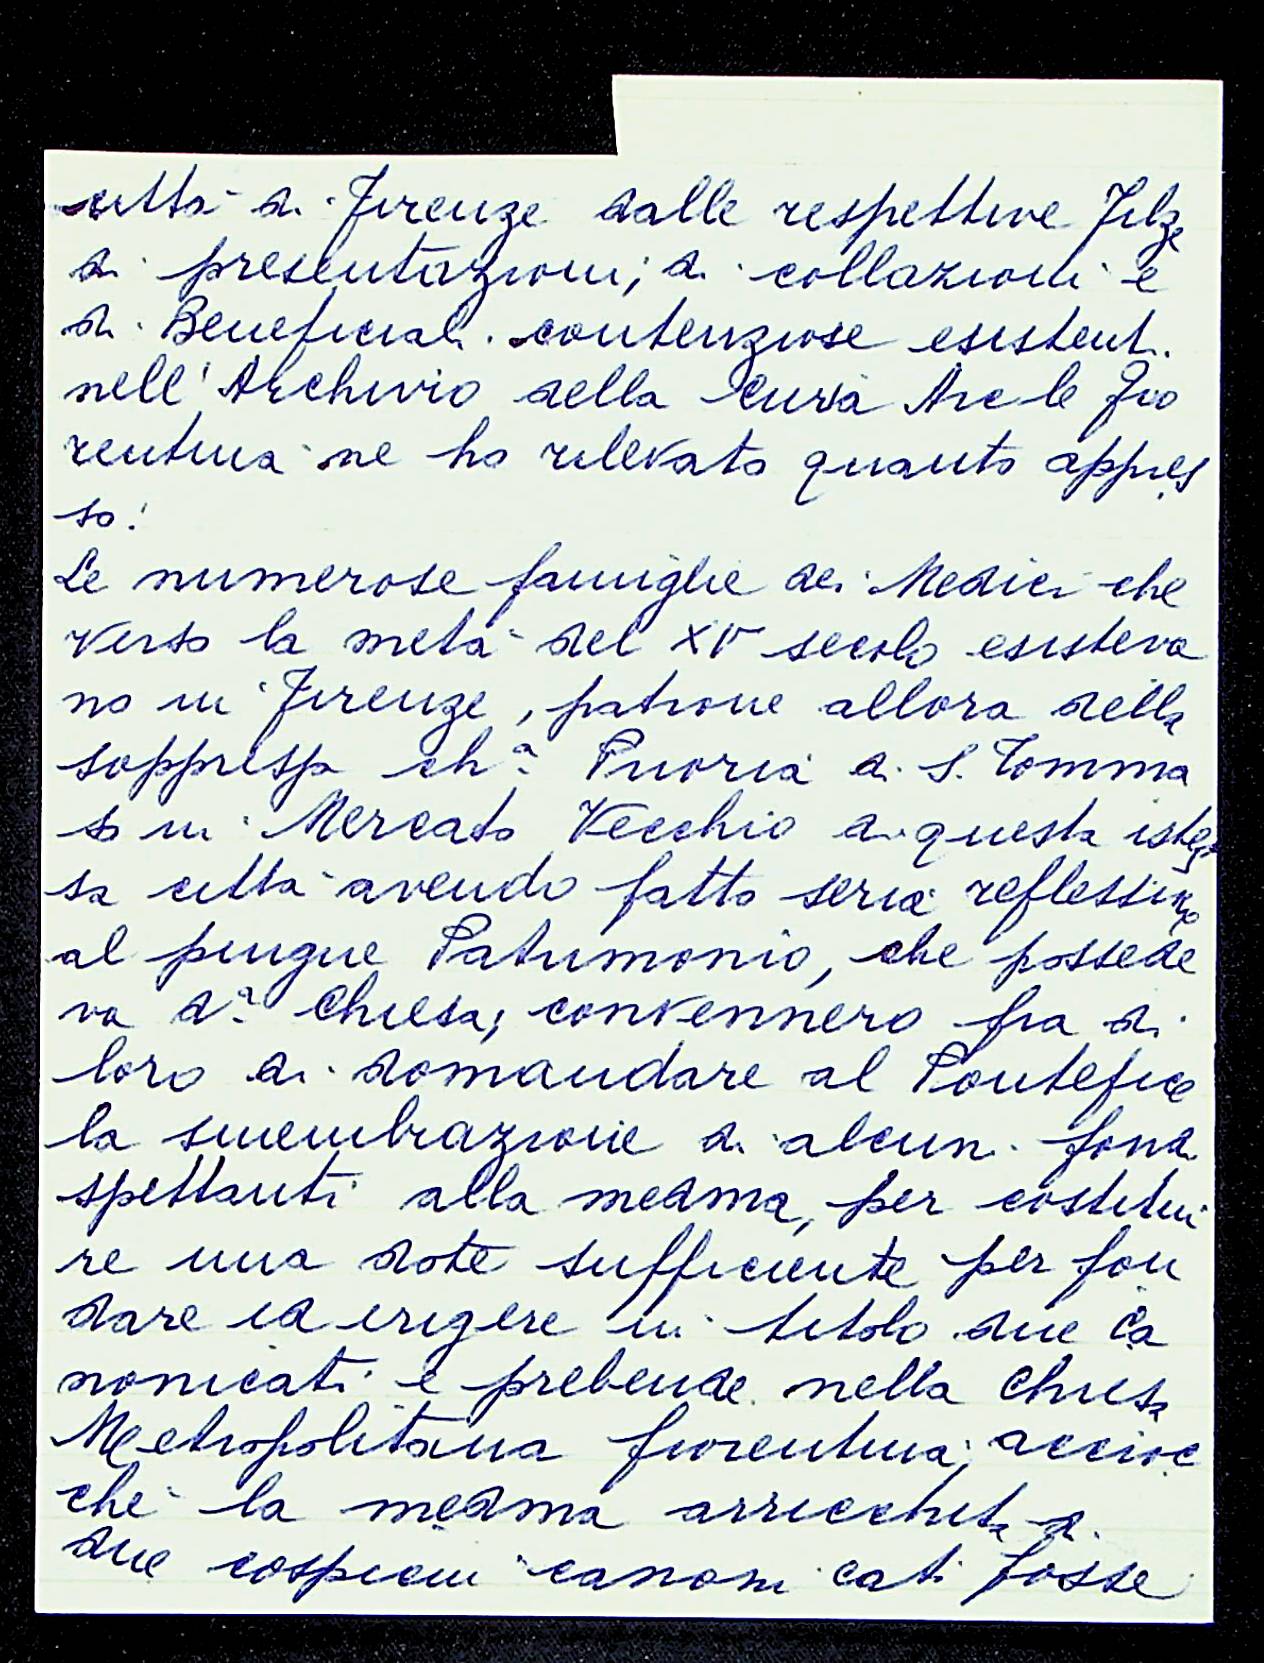 città di Firenze dalle respettive Filze
di presentazioni; di collazioni e
di Beneficiali contenziose esistenti
nell'Archivio della Curia Arcle Fio
rentina ne ho rilevato quanto appres
so:
Le numerose famiglie dei Medici che
verso la metà del XV secolo esisteva
no in Firenze, patrone allora della
soppressa chª Prioria di S. Tomma
so in Mercato Vecchio di questa istes
sa città avendo fatto seria reflessione
al pingue Patrimonio, che possede
va dª Chiesa; convennero fra di
loro di domandare al Pontefice
la smembrazione di alcuni fondi
spettanti alla medma, per costitui
re una dote sufficiente per fon
dare ed erigere in titolo due Ca
nonicati e prebende nella Chiesa
Metropolitana fiorentina; accioc
chè la medma arricchita di
due cospicui canonicati fosse